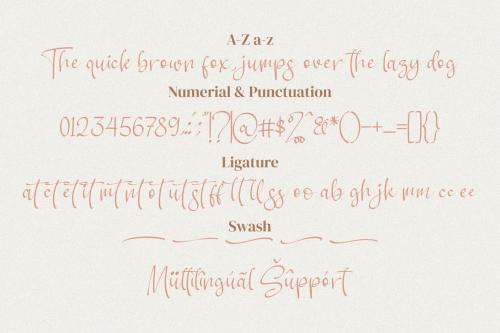 A-Z a-z
The quick brown fox jumps over the lazy dog
Numerial & Punctuation
0123456789,.;:'"!?|@#$%^&*()-+_=[]{}
Ligature
at ct et it mt nt ot ut st ff tt ll ss oo ab gh jk mm cc ee
Swash
Mültilîngúãl Šûppórt